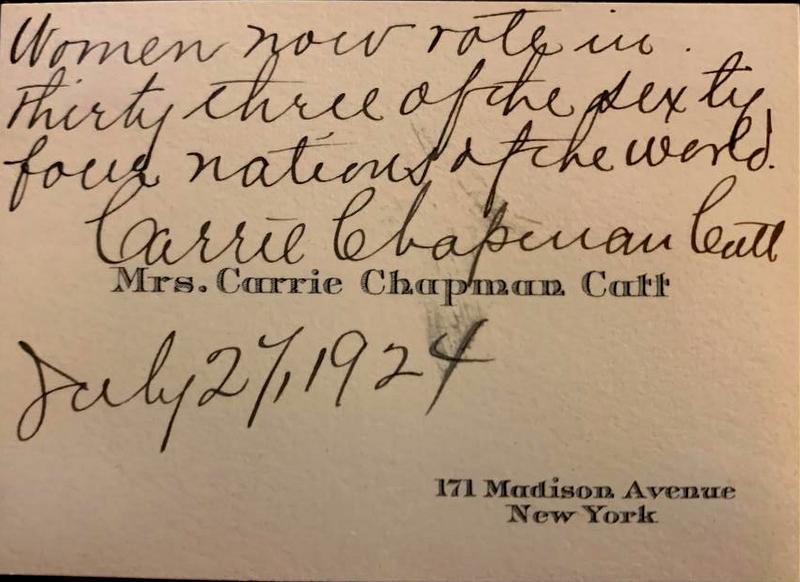 Women now vote in
thirty three of the sexty
four nations of the world.
Carrie Chapman Catt
Mrs. Carrie Chapman Catt
July 27, 1924
171 Madison Avenue
New York